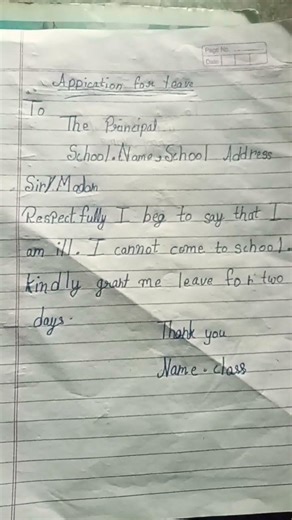 Page No.
Date
Appication for leave
To
The Principal
School.Name, School Address
Sir/Madam
Respectfully I beg to say that I
am ill. I cannot come to school.
kindly grant me leave for two
days.
Thank you
Name. class